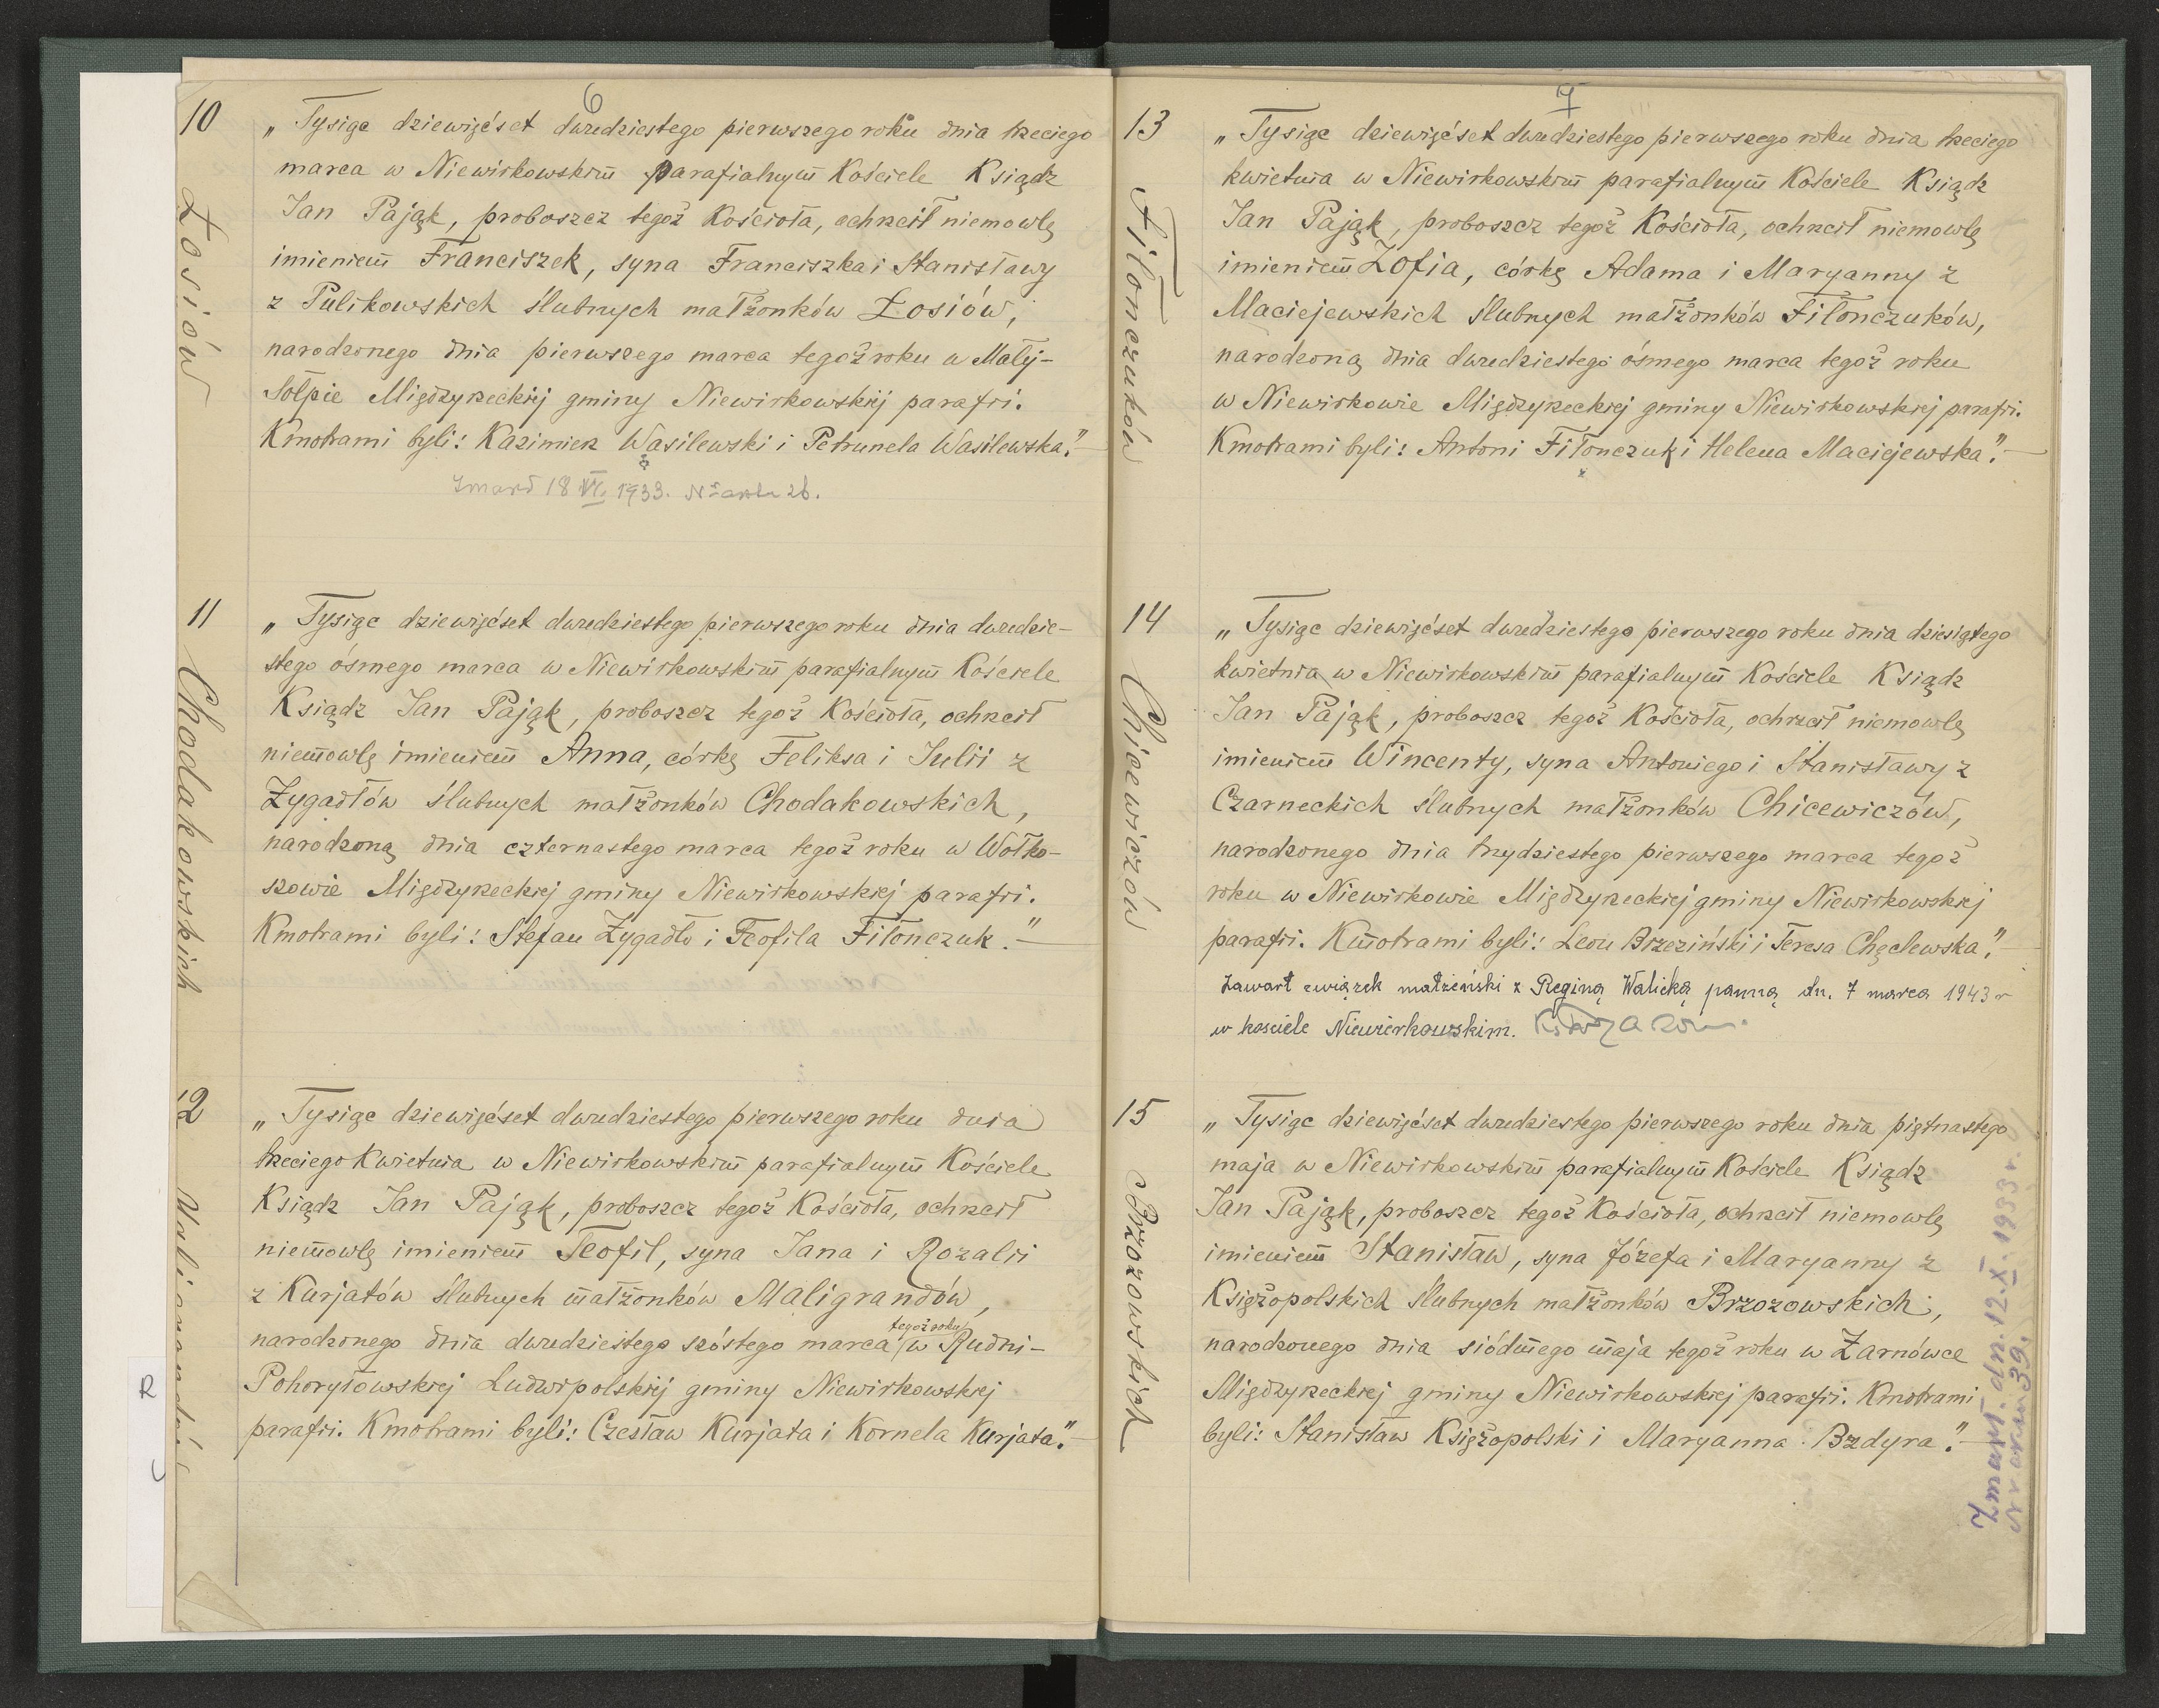 6
10
Łosiów
„Tysiąc dziewięćset dwudziestego pierwszego roku dnia trzeciego
marca w Niewirkowskim parafialnym Kościele Ksiądz
Jan Pająk, proboszcz tegoż Kościoła, ochrzcił niemowlę
imieniem Franciszek, syna Franciszka i Stanisławy
z Pulikowskich ślubnych małżonków Łosiów,
narodzonego dnia pierwszego marca tegoż roku w Małej-
Sołpie Międzyrzeckiej gminy Niewirkowskiej parafii.
Kmotrami byli: Kazimierz Wasilewski i Petrunela Wasilewska."—
Zmarł 18 VI. 1933. Nr aktu 26.
11
Chodakowskich
„Tysiąc dziewięćset dwudziestego pierwszego roku dnia dwudzie-
stego ósmego marca w Niewirkowskim parafialnym Kościele
Ksiądz Jan Pająk, proboszcz tegoż Kościoła, ochrzcił
niemowlę imieniem Anna, córkę Feliksa i Julii z
Zygadłów ślubnych małżonków Chodakowskich,
narodzoną dnia czternastego marca tegoż roku w Wołko-
szowie Międzyrzeckiej gminy Niewirkowskiej parafii.
Kmotrami byli: Stefan Zygadło i Teofila Fiłończuk."—
12
„Tysiąc dziewięćset dwudziestego pierwszego roku dnia
trzeciego Kwietnia w Niewirkowskim parafialnym Kościele
Ksiądz Jan Pająk, proboszcz tegoż Kościoła, ochrzcił
niemowlę imieniem Teofil, syna Jana i Rozalii
z Kurjatów ślubnych małżonków Maligrandów,
narodzonego dnia dwudziestego szóstego marca tegoż roku w Rudni-
Pohoryłowskiej Ludwipolskiej gminy Niewirkowskiej
parafii. Kmotrami byli: Czesław Kurjata i Kornela Kurjata."
7
13
Fiłończuków
„Tysiąc dziewięćset dwudziestego pierwszego roku dnia trzeciego
kwietnia w Niewirkowskim parafialnym Kościele Ksiądz
Jan Pająk, proboszcz tegoż Kościoła, ochrzcił niemowlę
imieniem Zofia, córkę Adama i Maryanny z
Maciejewskich ślubnych małżonków Fiłończuków,
narodzoną dnia dwudziestego ósmego marca tegoż roku
w Niewirkowie Międzyrzeckiej gminy Niewirkowskiej parafii.
Kmotrami byli: Antoni Fiłończuk i Helena Maciejewska."—
14
Chicewiczów
„Tysiąc dziewięćset dwudziestego pierwszego roku dnia dziesiątego
kwietnia w Niewirkowskim parafialnym Kościele Ksiądz
Jan Pająk, proboszcz tegoż Kościoła, ochrzcił niemowlę
imieniem Wincenty, syna Antoniego i Stanisławy z
Czarneckich ślubnych małżonków Chicewiczów,
narodzonego dnia trzydziestego pierwszego marca tegoż
roku w Niewirkowie Międzyrzeckiej gminy Niewirkowskiej
parafii. Kmotrami byli: Leon Brzeziński i Teresa Chęclewska."—
Zawarł związek małżeński z Reginą Walicką panną dn. 7 marca 1943 r
w kosciele Niewierkowskim.
15
Brzozowskich
„Tysiąc dziewięćset dwudziestego pierwszego roku dnia piętnastego
maja w Niewirkowskim parafialnym Kościele Ksiądz
Jan Pająk, proboszcz tegoż Kościoła, ochrzcił niemowlę
imieniem Stanisław, syna Józefa i Maryanny z
Księżopolskich ślubnych małżonków Brzozowskich,
narodzonego dnia siódmego maja tegoż roku w Żarnówce
Międzyrzeckiej gminy Niewirkowskiej parafii. Kmotrami
byli: Stanisław Księżopolski i Maryanna Bzdyra."—
Zmarł. dn. 12.X.1933 r.
Nr aktu 39.